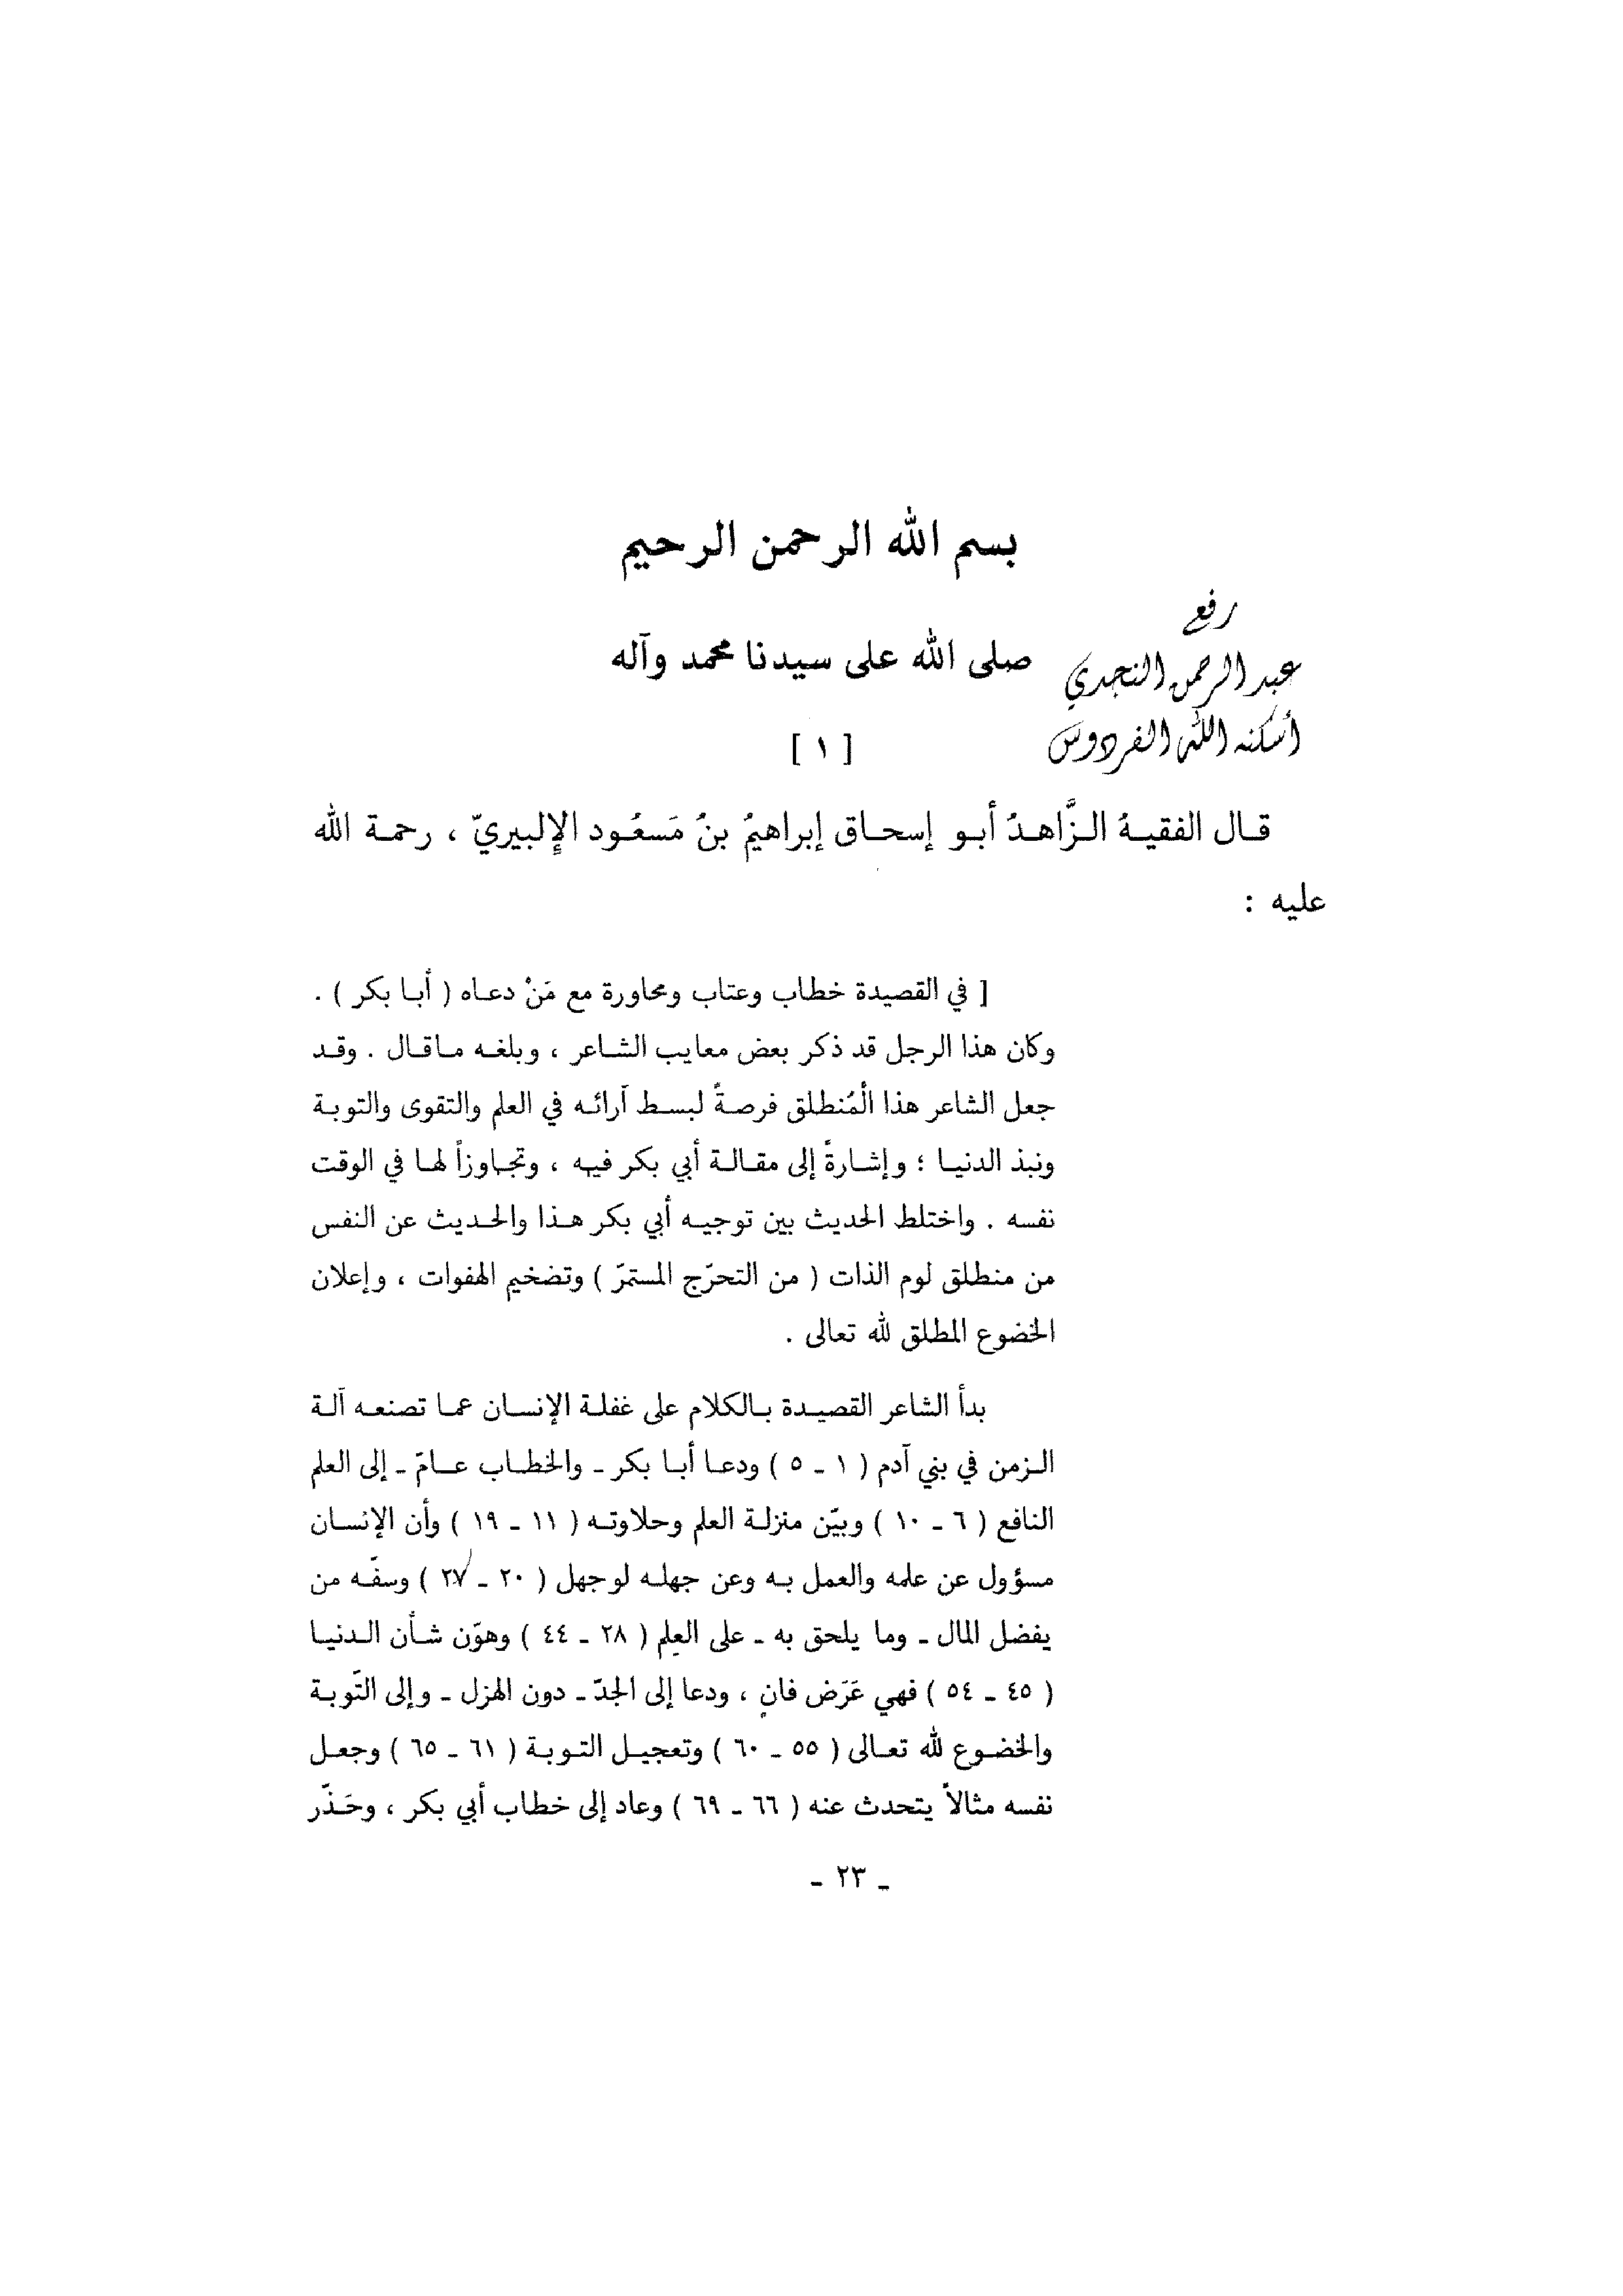 بسم الله الرحمن الرحيم
رفع
عبد الرحمن النجدي
أسكنه الله الفردوس
صلى الله على سيدنا محمد وآله
[ ١ ]
قـال الفقيـهُ الـزَّاهـدُ أبـو إسحـاق إبراهيمُ بنُ مَسعُـود الإلبيريّ ، رحمـة الله
عليه :
[ في القصيدة خطاب وعتاب ومحاورة مع مَنْ دعـاه ( أبـا بكر ) .
وكان هذا الرجل قد ذكر بعض معايب الشـاعر ، وبلغـه مـاقـال . وقـد
جعل الشاعر هذا المُنطلق فرصـةً لبسـط آرائـه في العلم والتقوى والتوبـة
ونبذ الدنيـا ؛ وإشـارةً إلى مقـالـة أبي بكر فيـه ، وتجـاوزاً لهـا في الوقت
نفسه . واختلط الحديث بين توجيـه أبي بكر هـذا والحـديث عن النفس
من منطلق لوم الذات ( من التحرّج المستمرّ ) وتضخيم الهفوات ، وإعلان
الخضوع المطلق لله تعالى .
بدأ الشاعر القصيـدة بـالكلام على غفلـة الإنسـان عمـا تصنعـه آلـة
الـزمن في بني آدم ( ١ ـ ٥ ) ودعـا أبـا بكر ـ والخطـاب عـامّ ـ إلى العلم
النافع ( ٦ ـ ١٠ ) وبيّن منزلـة العلم وحلاوتـه ( ١١ ـ ١٩ ) وأن الإنسـان
مسؤول عن علمه والعمل بـه وعن جهلـه لو جهل ( ٢٠ ـ ٢٧ ) وسفّـه من
يفضل المال ـ وما يلحق به ـ على العلم ( ٢٨ ـ ٤٤ ) وهوّن شـأن الـدنيـا
( ٤٥ ـ ٥٤ ) فهي عَرَض فانٍ ، ودعا إلى الجدّ ـ دون الهزل ـ وإلى التّوبـة
والخضـوع لله تعـالى ( ٥٥ ـ ٦٠ ) وتعجيـل التـوبـة ( ٦١ ـ ٦٥ ) وجعـل
نفسه مثالاً يتحدث عنه ( ٦٦ ـ ٦٩ ) وعاد إلى خطاب أبي بكر ، وحَـذّر
ـ ٢٣ ـ